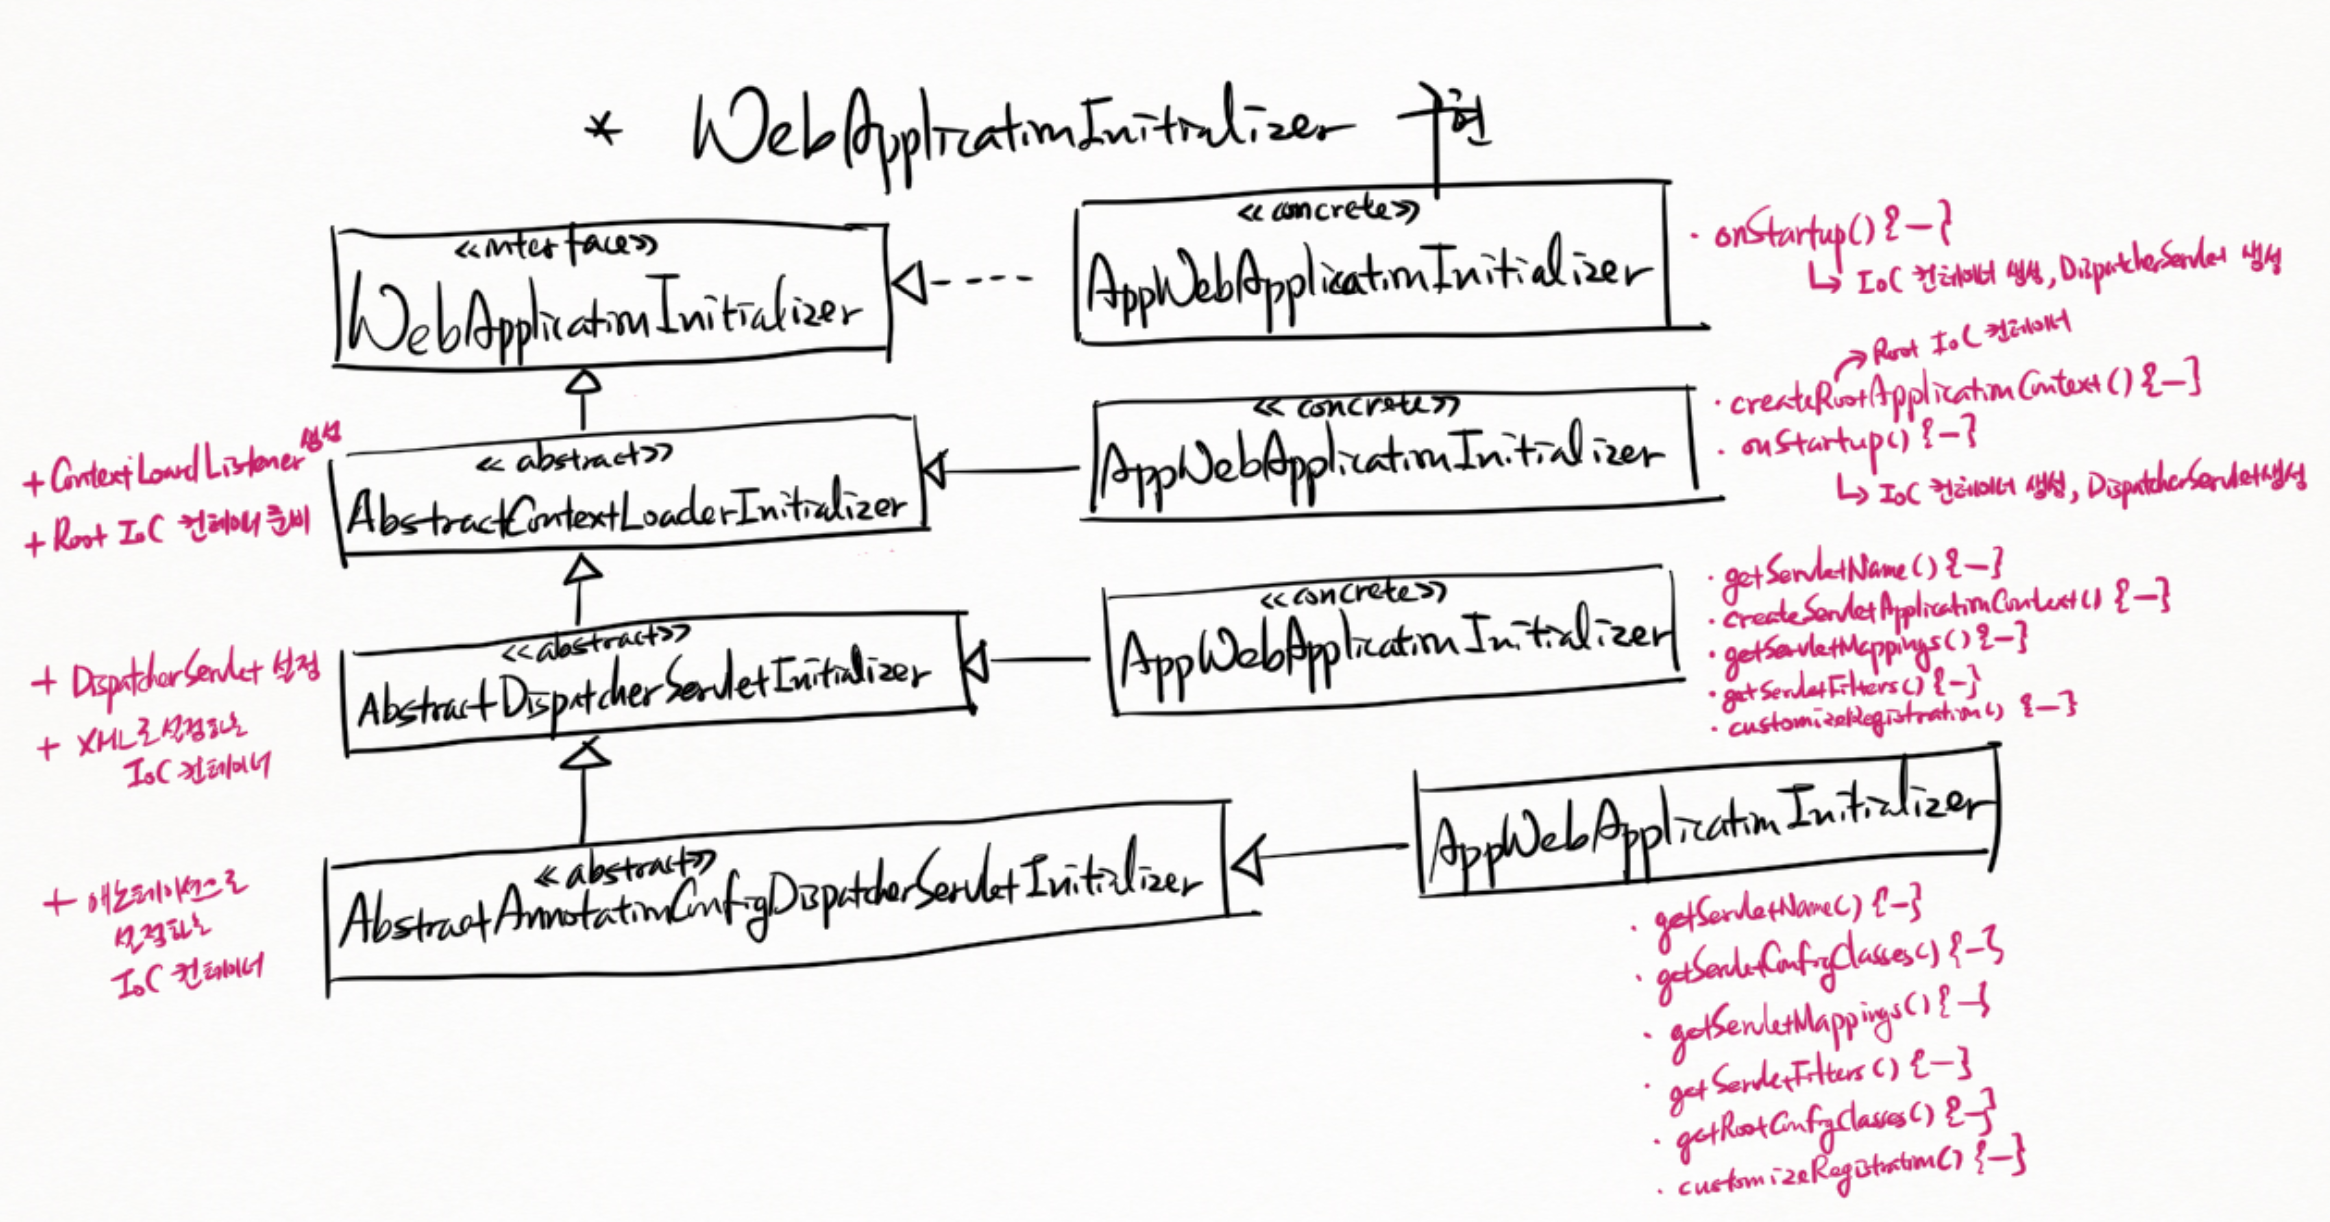 * WebApplicationInitializer 구현
<<interface>>
WebApplicationInitializer
<<concrete>>
AppWebApplicationInitializer
· onStartup() {—}
↳ IoC 컨테이너 생성, DispatcherServlet 생성
+ ContextLoardListener 생성
+ Root IoC 컨테이너 준비
<<abstract>>
AbstractContextLoaderInitializer
<<concrete>>
AppWebApplicationInitializer
→ Root IoC 컨테이너
· createRootApplicationContext() {—}
· onStartup() {—}
↳ IoC 컨테이너 생성, DispatcherServlet 생성
+ DispatcherServlet 설정
+ XML로 설정하는
IoC 컨테이너
<<abstract>>
AbstractDispatcherServletInitializer
<<concrete>>
AppWebApplicationInitializer
· getServletName() {—}
· createServletApplicationContext() {—}
· getServletMappings() {—}
· getServletFilters() {—}
· customizeRegistration() {—}
+ 애노테이션으로
설정하는
IoC 컨테이너
<<abstract>>
AbstractAnnotationConfigDispatcherServletInitializer
AppWebApplicationInitializer
· getServletName() {—}
· getServletConfigClasses() {—}
· getServletMappings() {—}
· getServletFilters() {—}
· getRootConfigClasses() {—}
· customizeRegistration() {—}